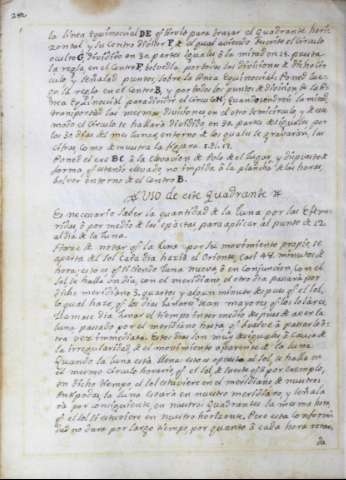 252
la linea Equinocial DE q̃ sirvio para trazar el Quadrante hori-
zontal y su Centro Divisor F, de el qual aviendo descrito el circulo
oculto G, dividirlo en 30 partes iguales ô la mitad en 15. puesta
la regla en el Centro F, bolverla por todas las divisiones de dicho circu-
lo y señalad puntos sobre la linea Equinocial; Poned lue-
go la regla en el Centro B, y por todos los puntos de division de la li-
nea Equinocial para dividir el circulo H; quando tendréis la mitad,
transportad las mesmas divisiones en el otro semicirculo y de este
modo el circulo se hallará dividido en 30 partes desiguales por
los 30 dias del mes lunar, entorno de los quales se gravarán las
cifras como demuestra la figura
Poned el exe BC à la elevacion de Polo de el lugar, y dispuesto de
forma q̃ estando elevado, no impida à la plancha de las horas,
bolver entorno de el Centro B.
Uso de este quadrante
Es necesario saber la quantidad de la luna por las Efeme-
ridas ô por medio de las epactas para aplicar al punto de 12
al dia de la luna.
Hase de notar q̃ la luna por su movimiento propio se
aparta del Sol cada dia hazia el Oriente casi 48 minutos de
hora; esto es q̃ siendo luna nueva ô en conjuncion con el
sol se halla un dia en el meridiano, el otro dia pasará por
dicho meridiano 3 quartos y algunos minutos despues q̃ el Sol,
lo qual haze q̃ los dias lunares sean mayores q̃ los solares.
Llamase dia lunar el tiempo intermedio despues de aver la
luna pasado por el meridiano hasta q̃ buelve à pasar de o-
tra vez immediata. Estos dias son muy desiguales à causa de
la irregularidad de el movimiento aparente de la luna.
Quando la luna está llena esto es opuesta al sol, se halla en
el mesmo circulo horario q̃ el Sol de suerte q̃ si por exemplo,
en dicho tiempo el Sol estuviere en el meridiano de nuestros
Antipodas, la luna estará en nuestro meridiano, y señala-
rá por consiguiente en nuestros Quadrantes la mesma hora,
q̃ el Sol si estuviere en nuestro horizonte. Pero esta conformi-
dad no dura por largo tiempo, por quanto à cada hora retar-
da